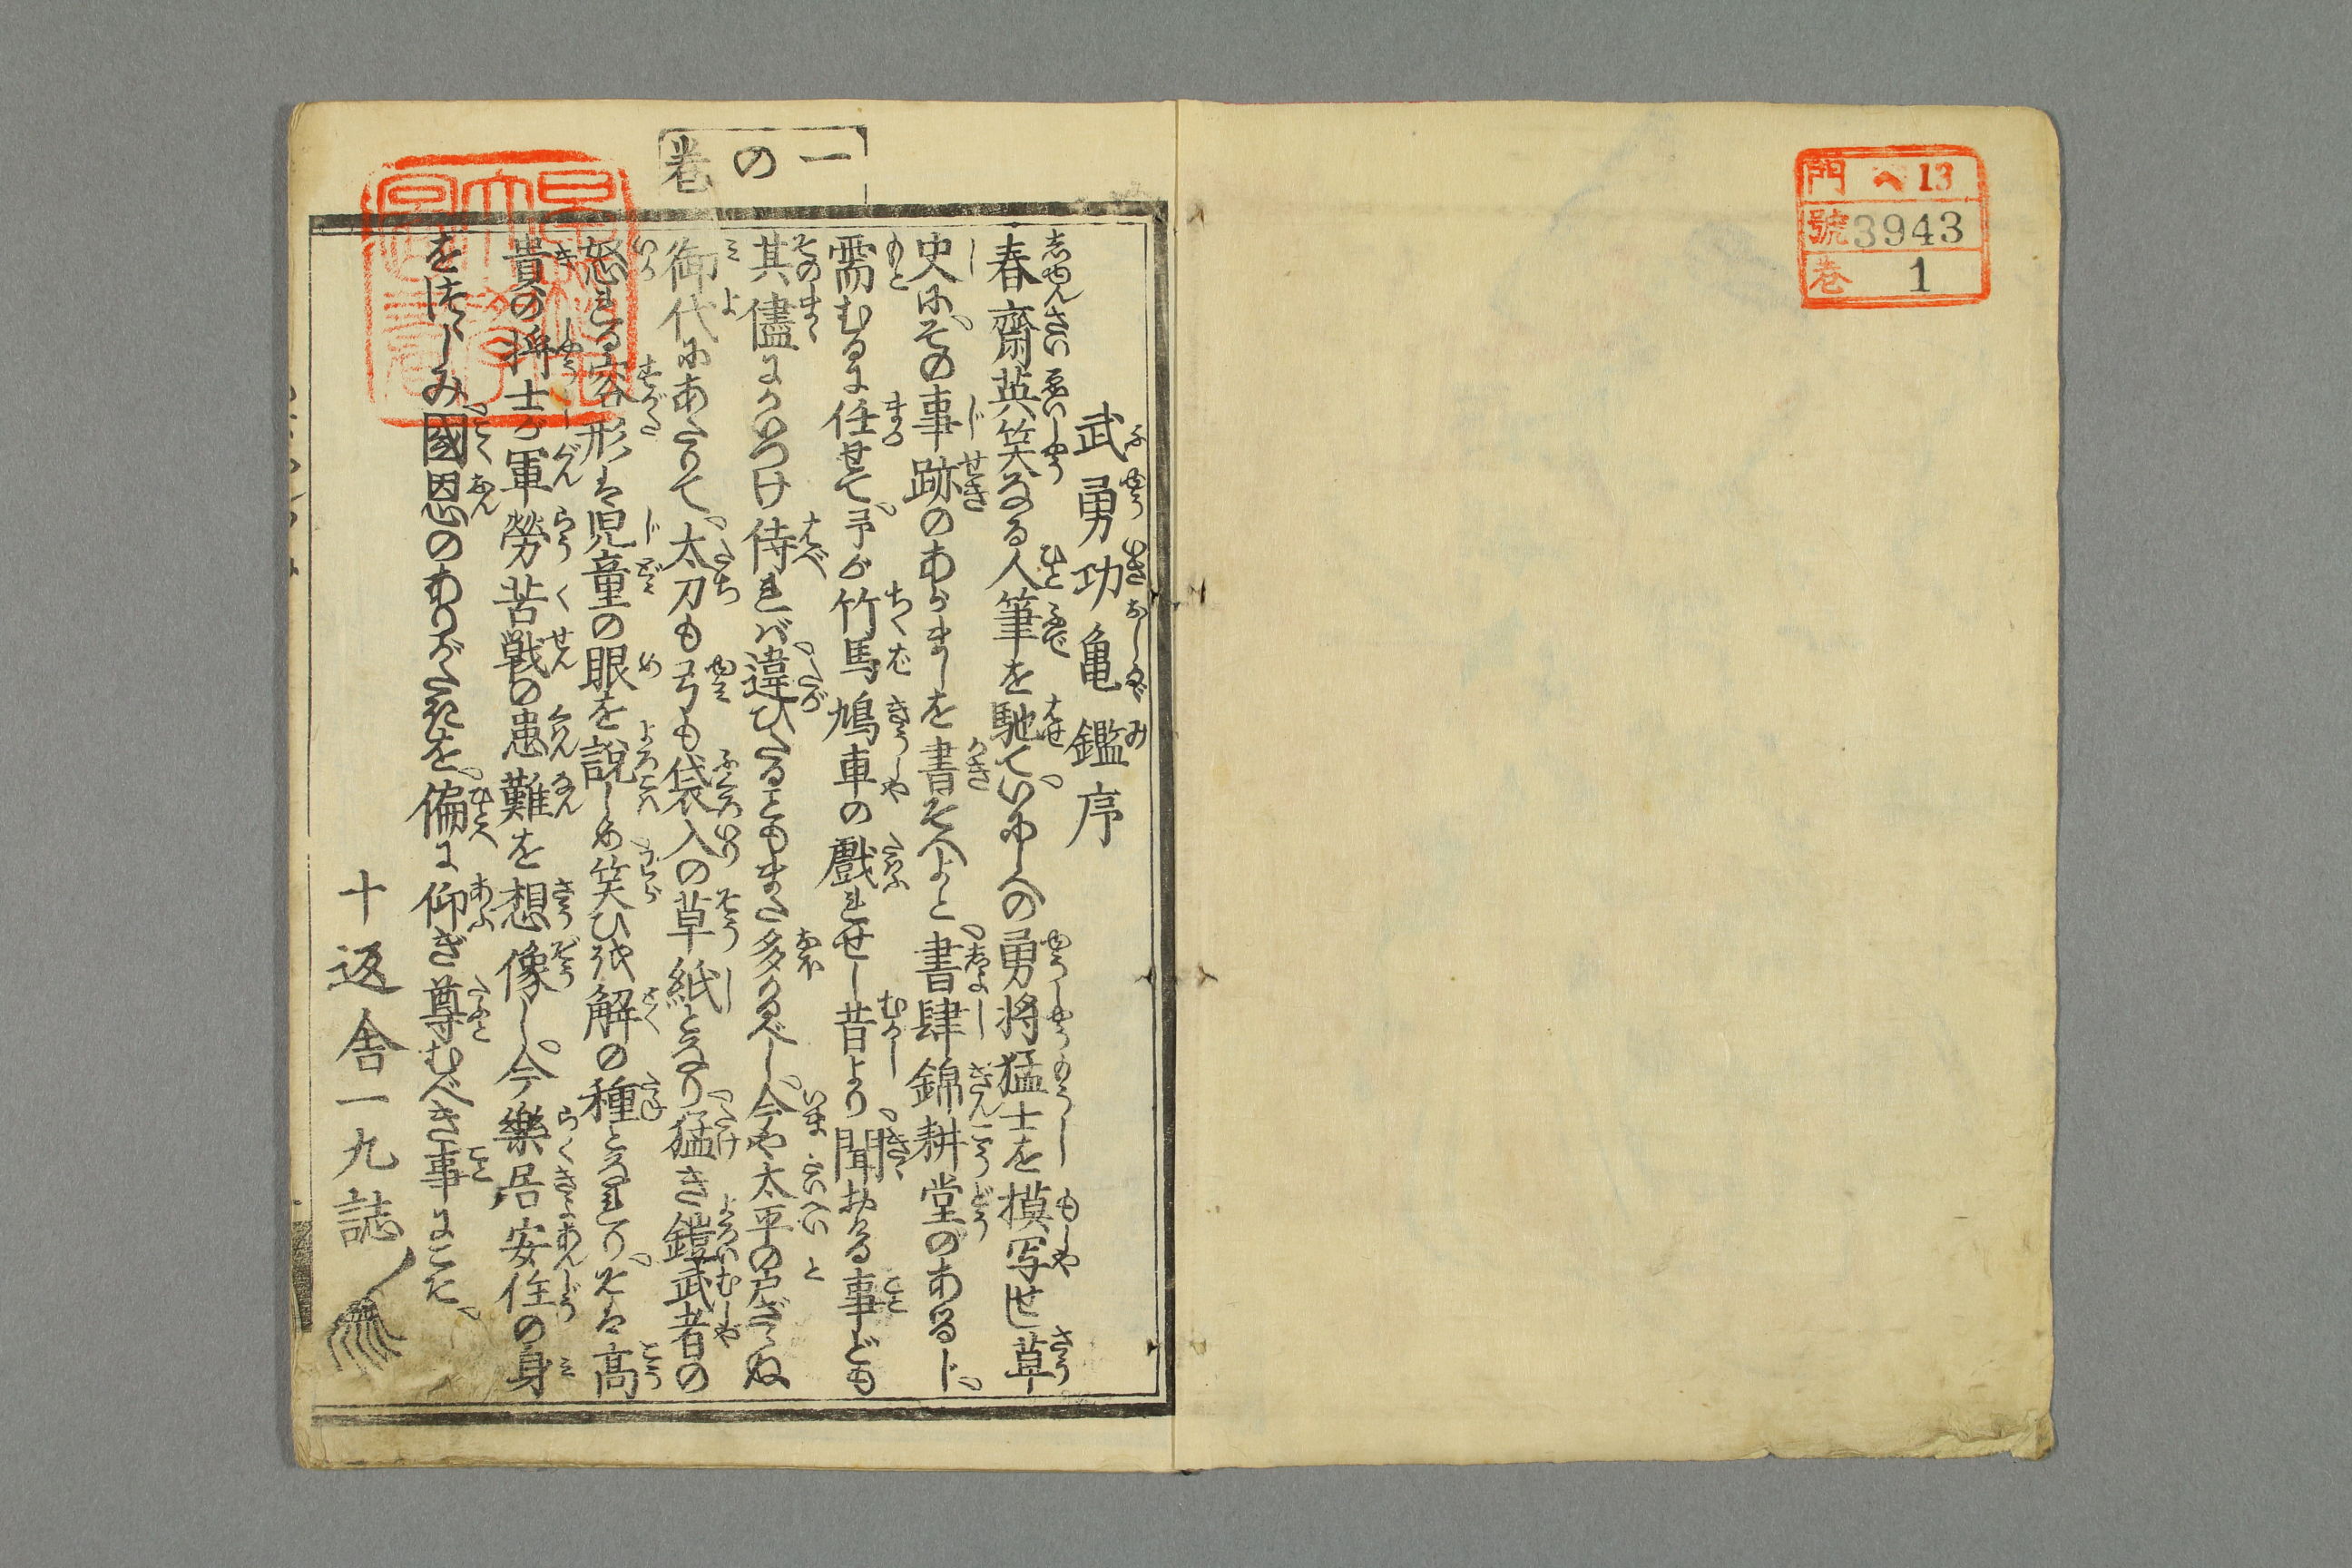 門 ヘ13
號 3943
巻 1
一の巻
武勇功亀鑑序
春齋英笑なる人筆を馳て、いにしへの勇将猛士を模写せ草
史に、その事跡のあらましを書そへよと、書肆錦耕堂のあるじ、
需むるに任せて、予が竹馬鳩車の戲れせし昔より、聞おける事ども
其儘にかいつけ侍れば、違ひたることもまた多かるべし、今や太平の戸ざゝぬ
御代にあたりて、太刀も弓も袋入の草紙となり、猛き鎧武者の
怒れる容形は児童の眼を説しめ、笑ひ解の種となれり、それ高
貴の将士が軍勞苦戦の患難を想像し、今樂居安住の身
をつゝしみ、國恩のありがたきを、偏に仰ぎ尊むべき事にこそ、
十返舎一九誌